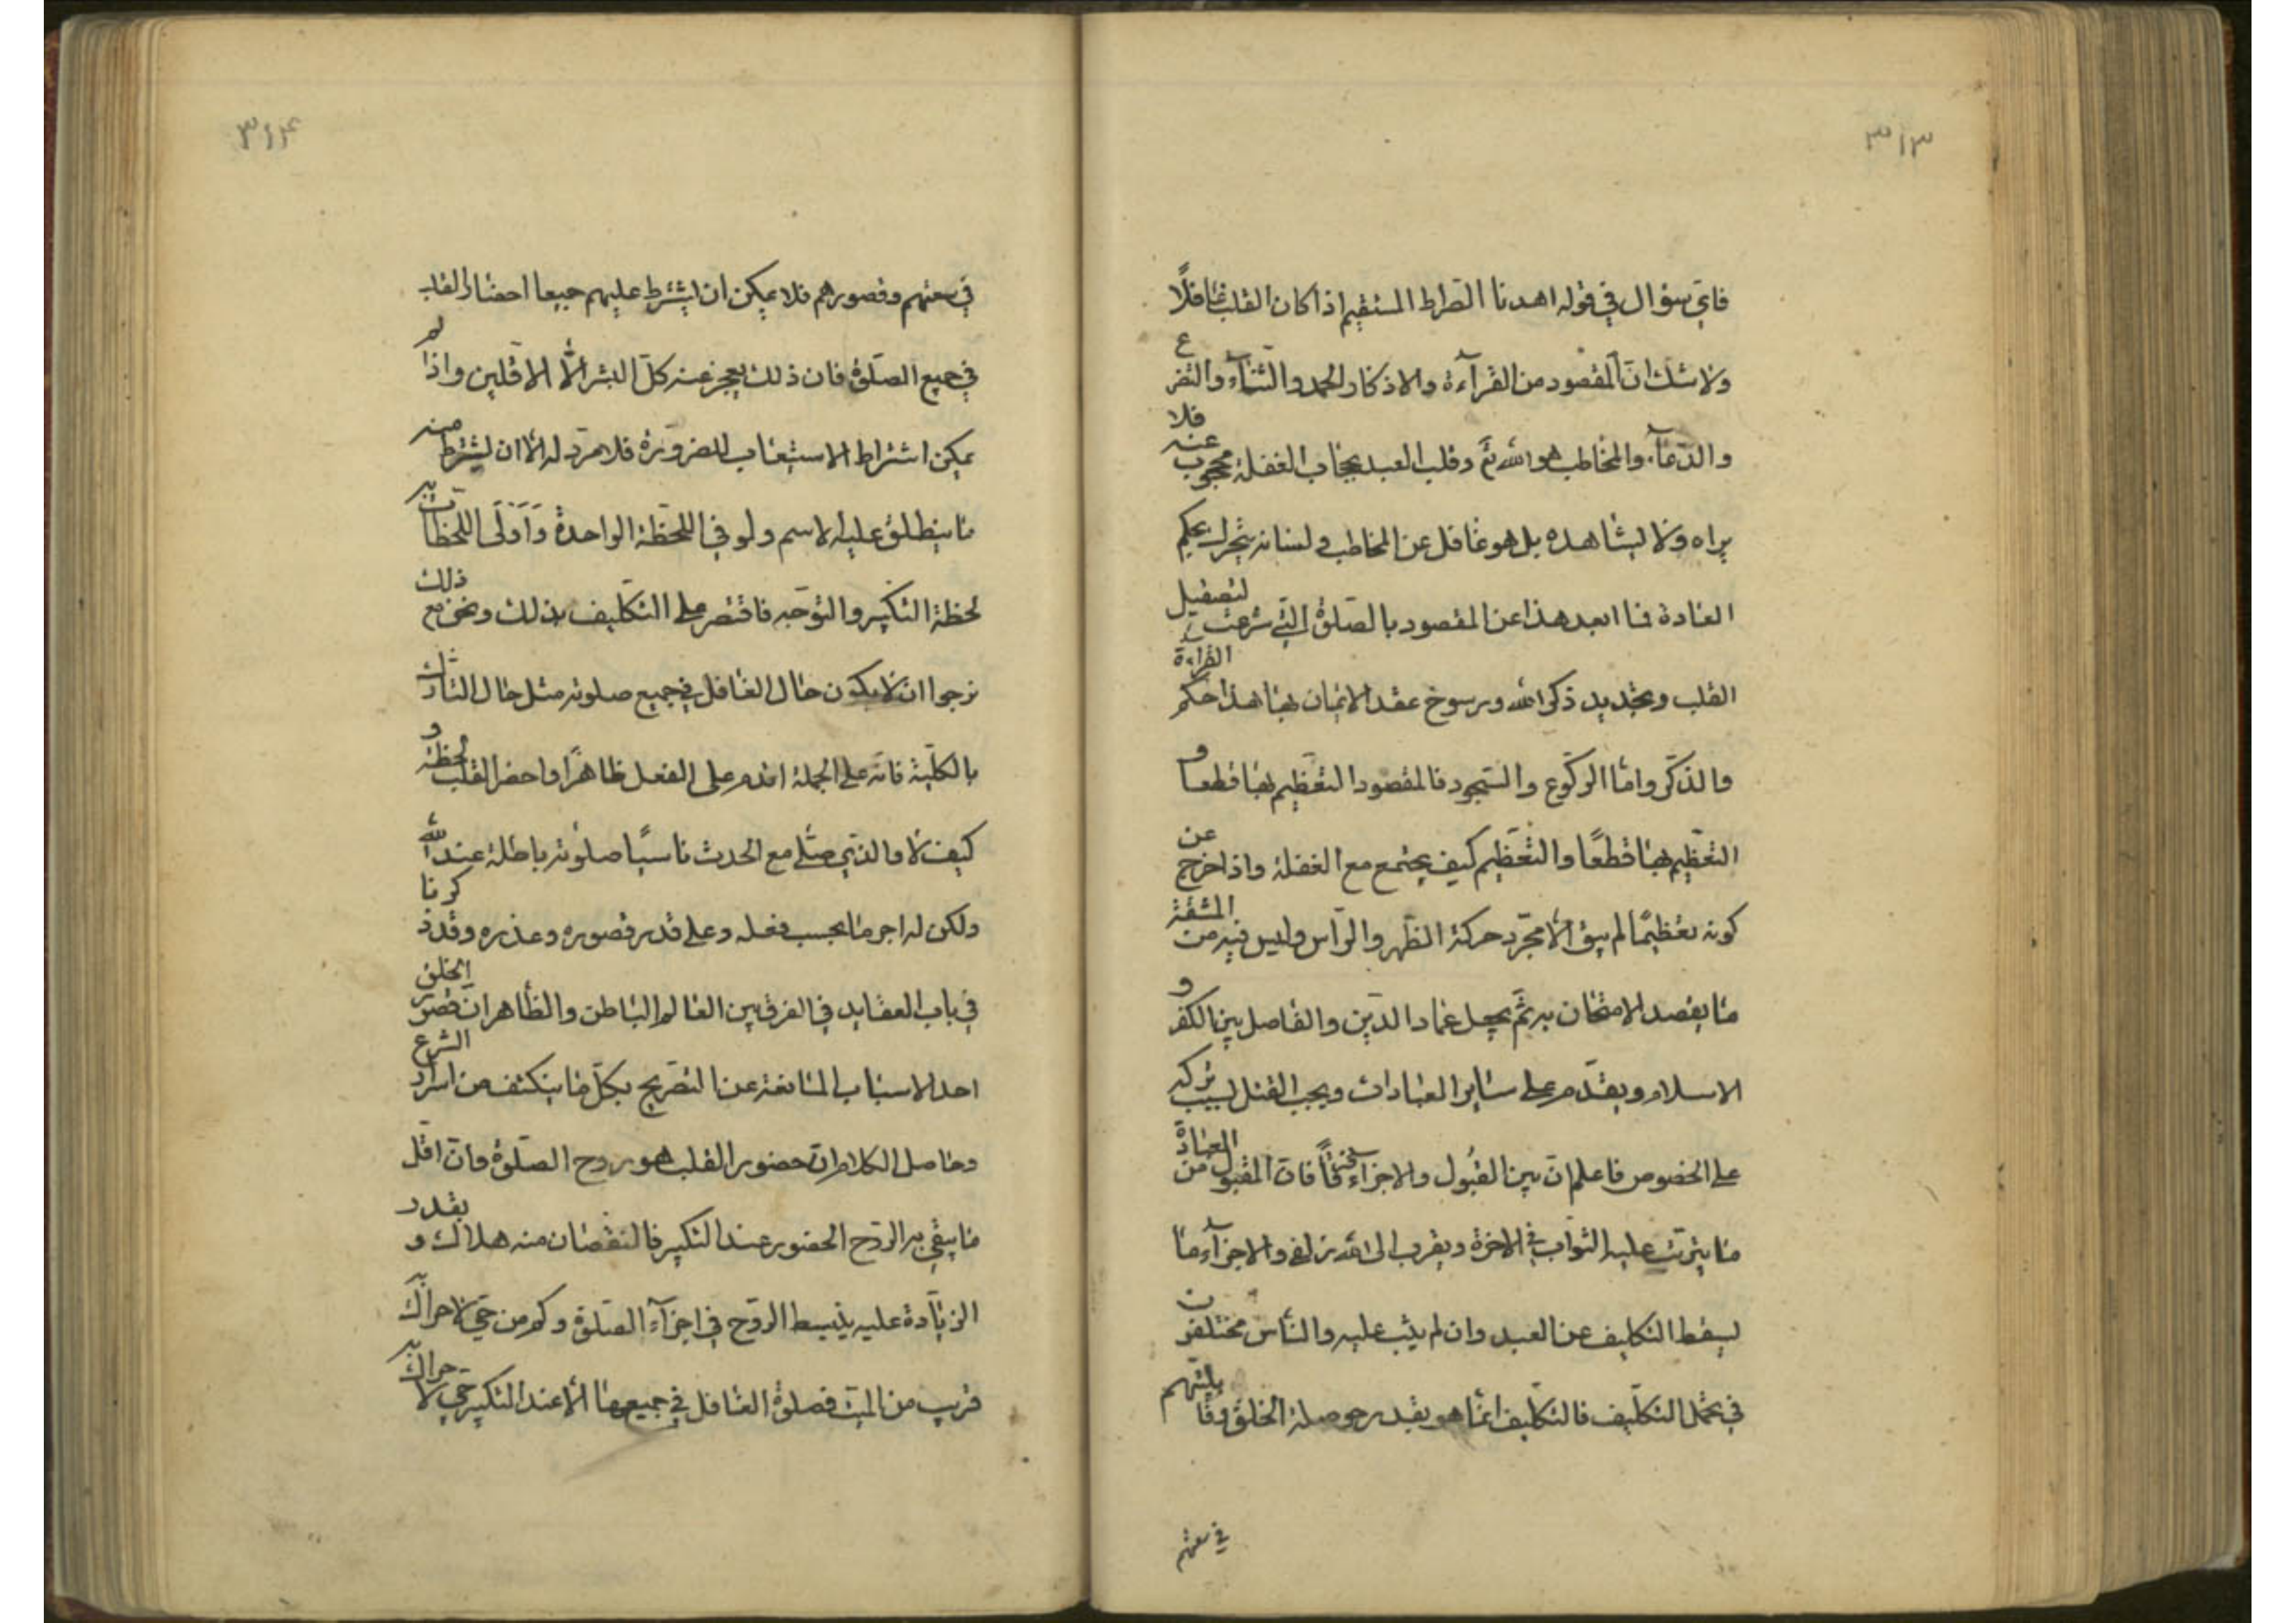 ۳۱۳
فای سؤال فی قوله اهدنا الصراط المستقیم اذا کان القلب غافلًا
ولا شک انّ المقصود من القرآءة والاذکار الحمد والثنآء والتضرع
والدّعآء والمخاطب هو الله تع وقلب العبد بحجاب الغفلة محجوب عنه فلا
یراه ولا یشاهده بل هو غافل عن المخاطب ولسانه یتحرک بحکم
العادة فما ابعد هذا عن المقصود بالصّلوة الّتی شرعت لتصقیل
القلب وتجدید ذکر الله ورسوخ عقد الایمان بها هذا حکم القراءة
والذّکر وامّا الرّکوع والسّجود فالمقصود التعظیم بهما قطعا و
التّعظیم بهما قطعًا والتّعظیم کیف یجتمع مع الغفلة واذا خرج عن
کونه تعظیمًا لم یبق الّا مجرّد حرکة الظّهر والرّأس ولیس فیه من المشقة
ما یقصد الامتحان به ثمّ یجعل عماد الدّین والفاصل بین الکفر و
الاسلام ویقدّم علی سایر العبادات ویجب القتل بسبب ترکه
علی الخصوص فاعلم انّ بین القبول والاجزاء فرقًا فانّ المقبول من العبادة
ما یترتّب علیه الثّواب فی الاخرة ویقرب الی الله زلفی والاجزآء ما
یسقط التکلیف عن العبد وان لم یثب علیه والنّاس مختلفون
فی تحمّل التکلیف فالتکلیف انّما هو بقدر حوصلة الخلق وقابلیّتهم
فی سعتهم
۳۱۴
فی سعتهم وقصورهم فلا یمکن ان یشترط علیهم جمیعا احضار القلب
فی جمیع الصّلوة فان ذلک یعجز عنه کلّ البشر الّا الاقلین واذا لم
یمکن اشتراط الاستیعاب للضرورة فلا مردّ له الّا ان یشترط منه
ما ینطلق علیه الاسم ولو فی اللحظة الواحدة وَاَوْلَی اللّحظات به
لحظة التکبیر والتوجّه فاقتصر علی التکلیف بذلک ونحن مع ذلک
نرجوا ان لا یکون حال الغافل فی جمیع صلوته مثل حال التارک
بالکلّیة فانه علی الجملة اقدم علی الفعل ظاهرًا واحضر القلب لحظة و
کیف لا والذی صلّی مع الحدث ناسیًا صلوته باطلة عند الله
ولکن له اجر ما بحسب فعله وعلی قدر قصوره وعذره وقد ذکرنا
فی باب العقاید فی الفرق بین العالم الباطن والظّاهر انّ قصور الخلق
احد الاسباب المانعة عن التصریح بکلّ ما ینکشف من اسرار الشرع
وحاصل الکلام انّ حضور القلب هو روح الصّلوة وانّ اقلّ
ما یبقی به الرّوح الحضور عند التکبیر فالنقصان منه هلاک و بقدر
الزیادة علیه ینبسط الرّوح فی اجزآء الصّلوة وکم من حیّ لا حراک به
قریب من المیّت فصلوة الغافل فی جمیعها الّا عند التکبیر حیّ لا حراک به